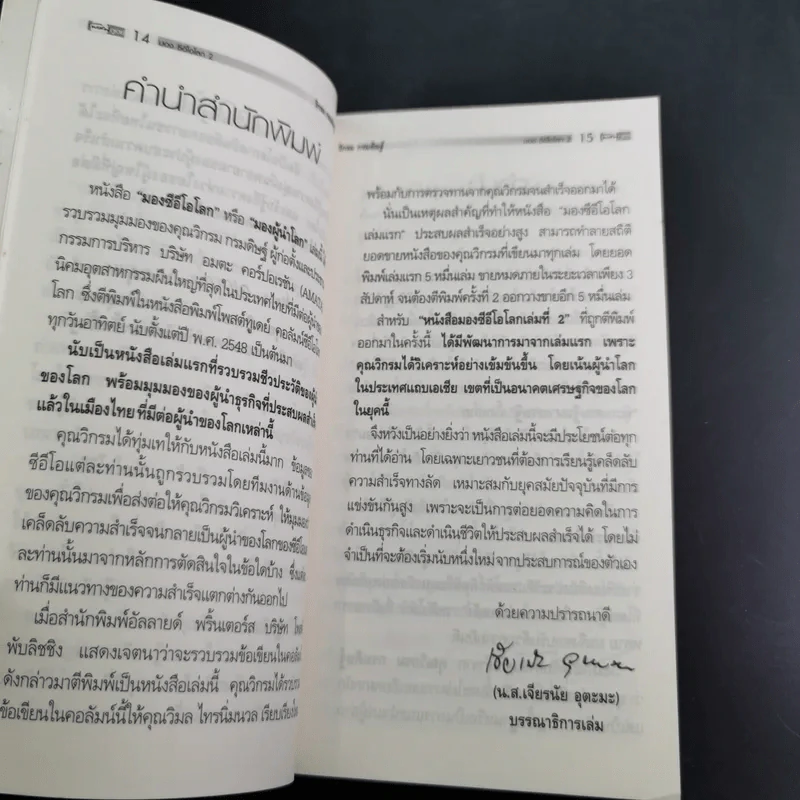 14 มอง ซีอีโอโลก 2
คำนำสำนักพิมพ์
หนังสือ "มองซีอีโอโลก" หรือ "มองผู้นำโลก"
รวบรวมมุมมองของคุณวิกรม กรมดิษฐ์ ผู้ก่อตั้งและประธาน
กรรมการบริหาร บริษัท อมตะ คอร์ปอเรชัน
นิคมอุตสาหกรรมผืนใหญ่ที่สุดในประเทศไทยที่มีต่อผู้นำ
โลก ซึ่งตีพิมพ์ในหนังสือพิมพ์โพสต์ทูเดย์ คอลัมน์ซีอีโอโลก
ทุกวันอาทิตย์ นับตั้งแต่ปี พ.ศ. 2548 เป็นต้นมา
นับเป็นหนังสือเล่มแรกที่รวบรวมชีวประวัติของ
ของโลก พร้อมมุมมองของผู้นำธุรกิจที่ประสบผลสำเร็จ
แล้วในเมืองไทย ที่มีต่อผู้นำของโลกเหล่านี้
คุณวิกรมได้ทุ่มเทให้กับหนังสือเล่มนี้มาก
ซีอีโอแต่ละท่านนั้นถูกรวบรวมโดยทีมงานด้าน
ของคุณวิกรมเพื่อส่งต่อให้คุณวิกรมวิเคราะห์
เคล็ดลับความสำเร็จจนกลายเป็นผู้นำของโลกของซีอีโอ
ละท่านนั้นมาจากหลักการตัดสินใจในข้อใดบ้าง
ท่านก็มีแนวทางของความสำเร็จแตกต่างกันออกไป
เมื่อสำนักพิมพ์อัลลายด์ พริ้นเตอร์ส บริษัท
พับลิชชิง แสดงเจตนาว่าจะรวบรวมข้อเขียนในคอลัมน์
ดังกล่าวมาตีพิมพ์เป็นหนังสือเล่มนี้ คุณวิกรมได้
ข้อเขียนในคอลัมน์นี้ให้คุณวิมล ไทรนิ่มนวล เรียบเรียง
วิกรม กรมดิษฐ์ มอง ซีอีโอโลก 2 15
พร้อมกับการตรวจทานจากคุณวิกรมจนสำเร็จออกมาได้
นั่นเป็นเหตุผลสำคัญที่ทำให้หนังสือ "มองซีอีโอโลก
เล่มแรก" ประสบผลสำเร็จอย่างสูง สามารถทำลายสถิติ
ยอดขายหนังสือของคุณวิกรมที่เขียนมาทุกเล่ม โดยยอด
พิมพ์เล่มแรก 5 หมื่นเล่ม ขายหมดภายในระยะเวลาเพียง 3
สัปดาห์ จนต้องตีพิมพ์ครั้งที่ 2 ออกวางขายอีก 5 หมื่นเล่ม
สำหรับ "หนังสือมองซีอีโอโลกเล่มที่ 2" ที่ถูกตีพิมพ์
ออกมาในครั้งนี้ ได้มีพัฒนาการมาจากเล่มแรก เพราะ
คุณวิกรมได้วิเคราะห์อย่างเข้มข้นขึ้น โดยเน้นผู้นำโลก
ในประเทศแถบเอเชีย เขตที่เป็นอนาคตเศรษฐกิจของโลก
ในยุคนี้
จึงหวังเป็นอย่างยิ่งว่า หนังสือเล่มนี้จะมีประโยชน์ต่อทุก
ท่านที่ได้อ่าน โดยเฉพาะเยาวชนที่ต้องการเรียนรู้เคล็ดลับ
ความสำเร็จทางลัด เหมาะสมกับยุคสมัยปัจจุบันที่มีการ
แข่งขันกันสูง เพราะจะเป็นการต่อยอดความคิดในการ
ดำเนินธุรกิจและดำเนินชีวิตให้ประสบผลสำเร็จได้ โดยไม่
จำเป็นที่จะต้องเริ่มนับหนึ่งใหม่จากประสบการณ์ของตัวเอง
ด้วยความปรารถนาดี
(น.ส.เจียรนัย อุตะมะ)
บรรณาธิการเล่ม